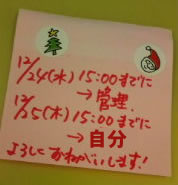 12/24(水) 15:00までに
→管理.
12/25(木) 15:00までに
→自分
よろしくおねがいします!